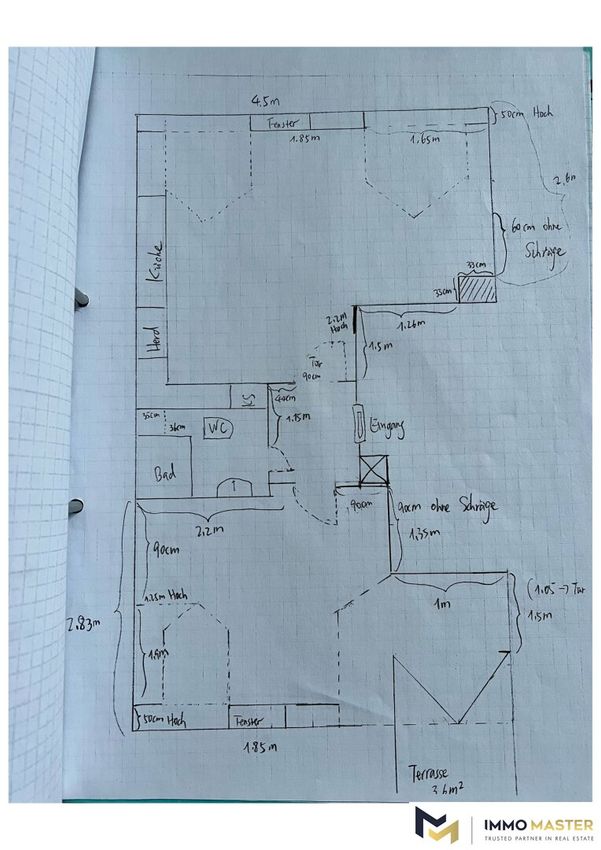 4.5m
50cm Hoch
Fenster
1.85m
1.65m
60cm ohne
Schräge
33cm
35cm
Küche
2.2m
Hoch
1.26m
1.5m
Herd
Tür
90cm
KS
40cm
1.15m
35cm
36cm
WC
Eingang
Bad
90cm
90cm ohne Schräge
2.2m
1.35m
90cm
1m
(1.05 -> Tür
1.5m
1.25m Hoch
2.83m
50cm Hoch
Fenster
1.85m
Terrasse
3.6m²
IMMO MASTER
TRUSTED PARTNER IN REAL ESTATE